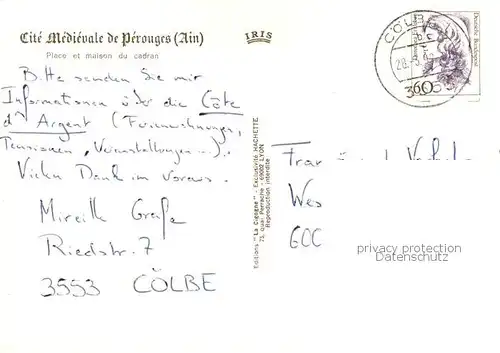 Cité Médiévale de Pérouges (Ain)
Place et maison du cadran
IRIS
CÖLBE
Deutsche Bundespost
3553
60
Bitte senden Sie mir
Informationen über die Côte
d'Argent (Ferienwohnungen,
Pensionen, Veranstaltungen...).
Vielen Dank im voraus.
Mireille
Riedstr. 7
3553 CÖLBE
Editions "La Cigogne" - Exclusivité HACHETTE
75, quai Perrache - 69002 LYON
Reproduction interdite
Wes
privacy protection
Datenschutz